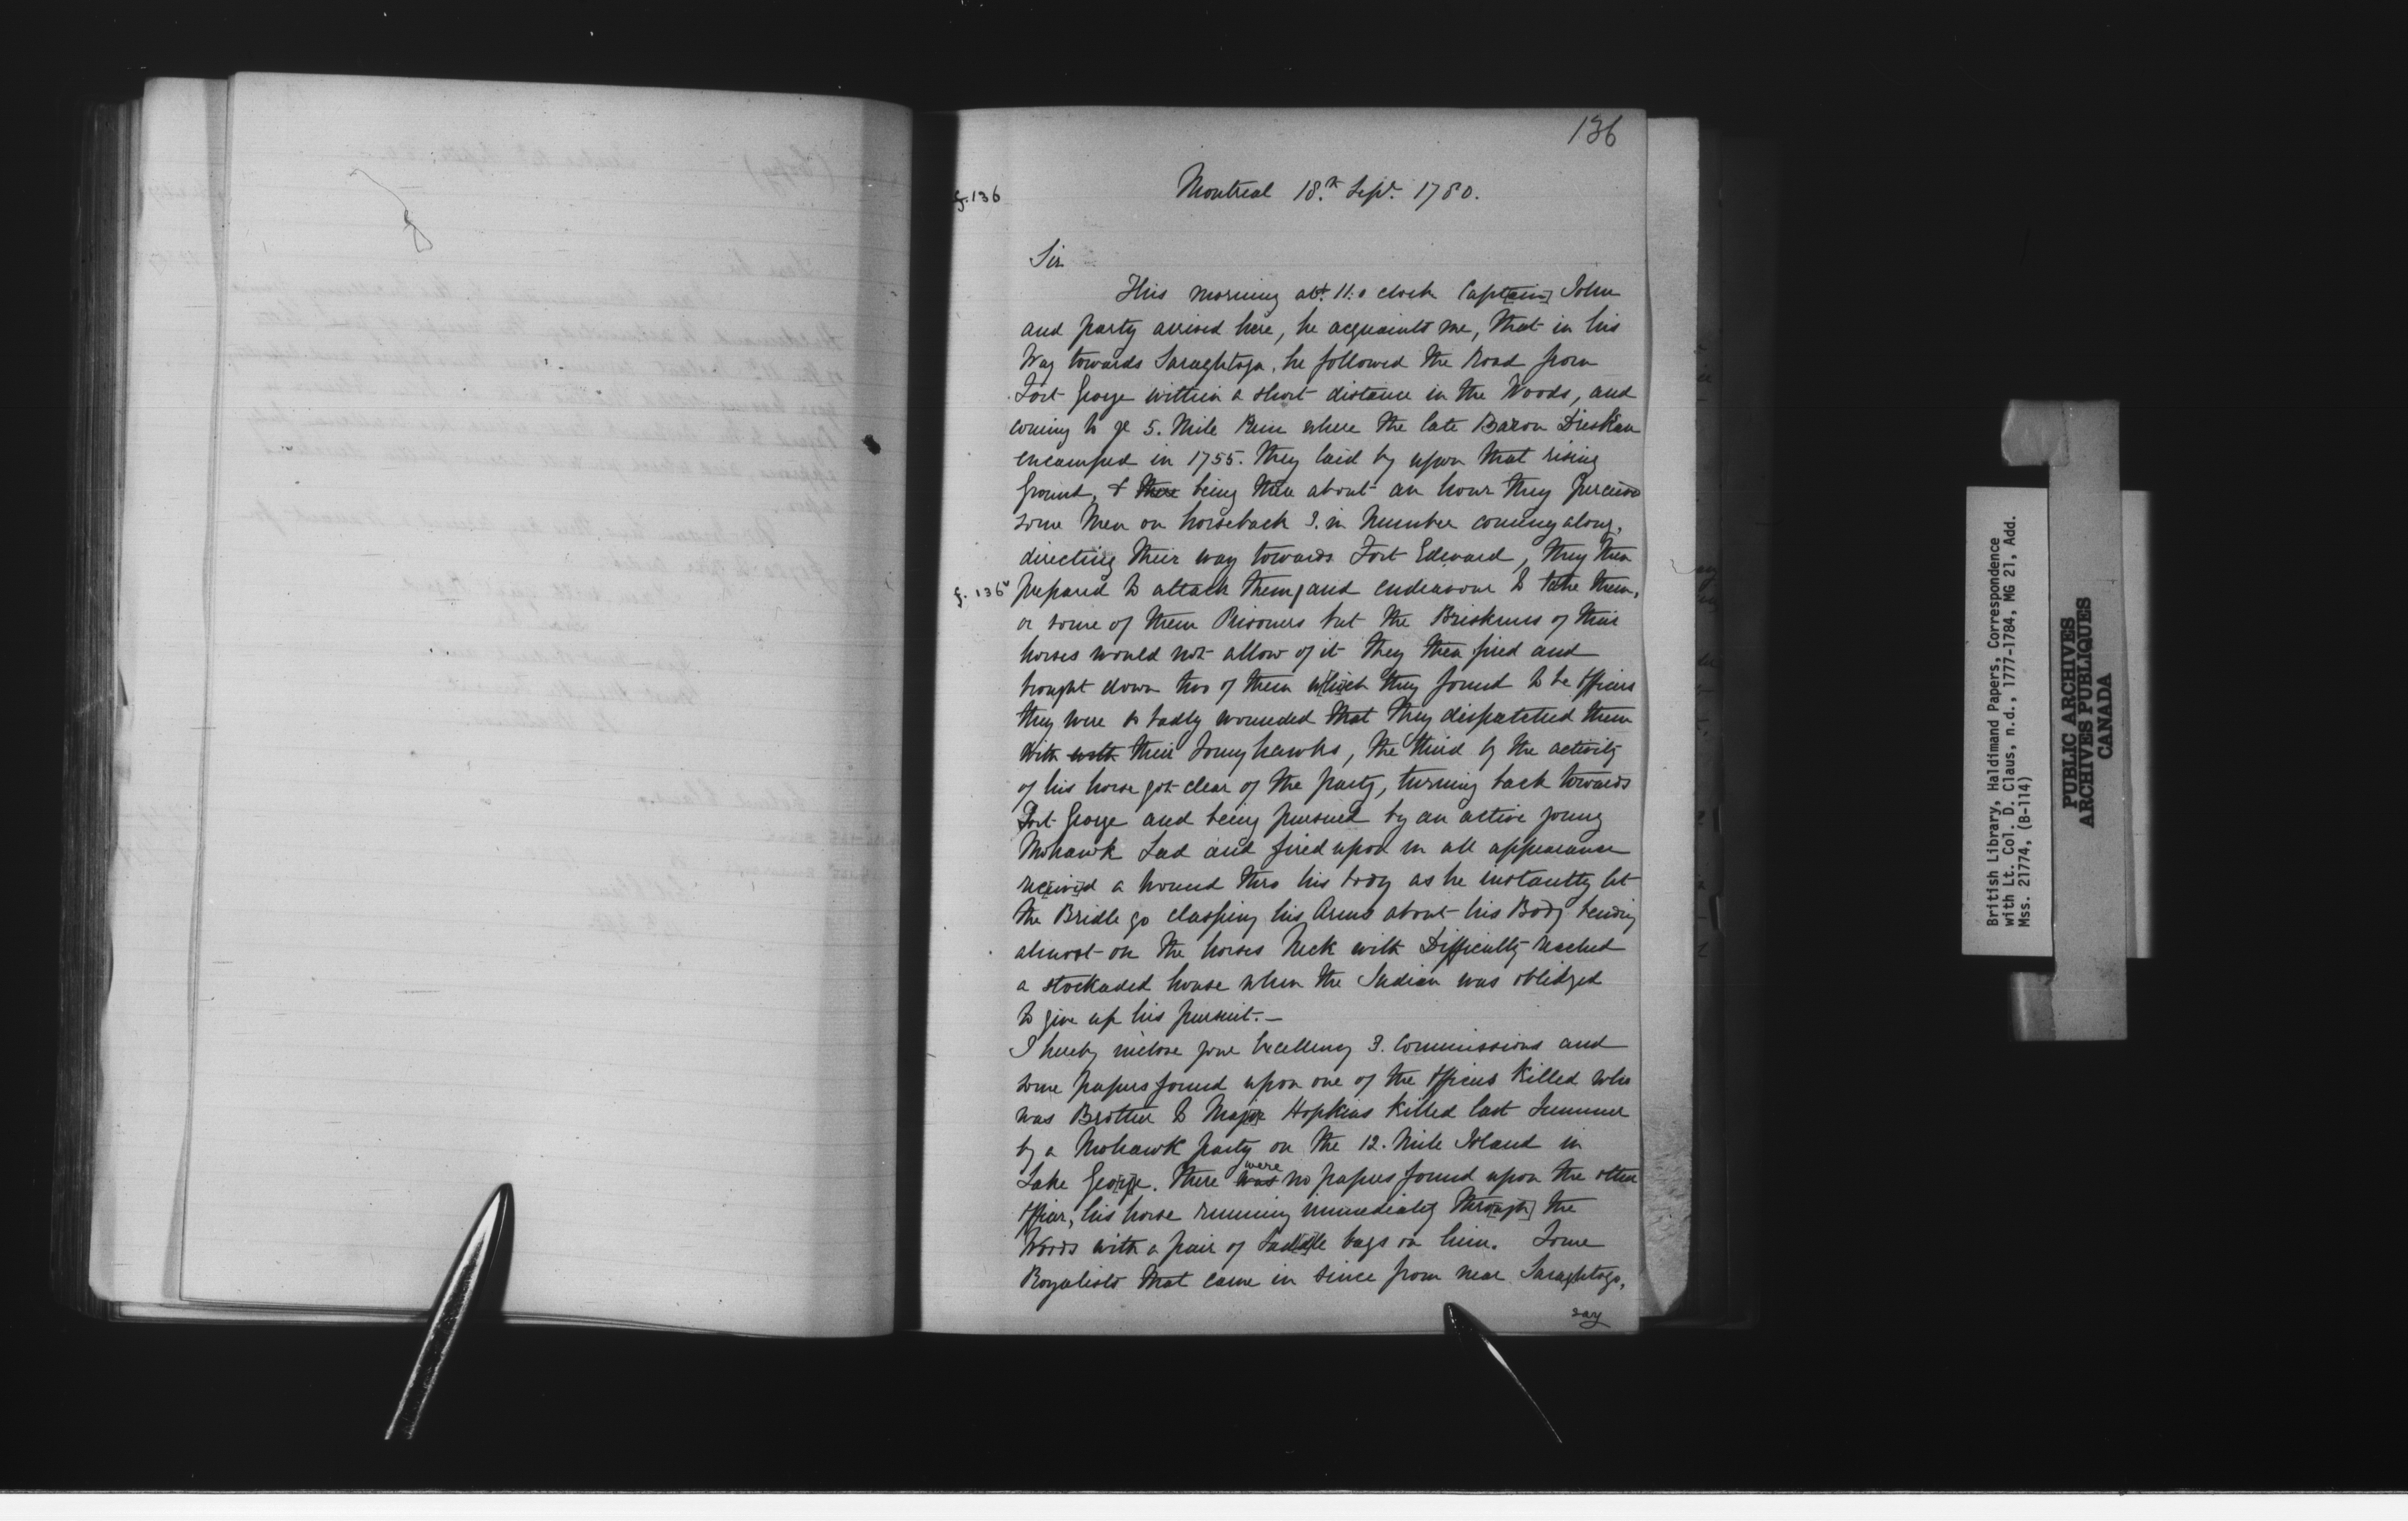 136
f. 136
Montreal 18th. Sept. 1780.
Sir
This morning abt. 11. o clock Capt[ain] John
and party arrived here, he acquaints me, that in his
Way towards Saraghtoga, he followed the Road from
Fort George within a short distance in the Woods, and
coming to ye 5. Mile Run where the late Baron Dieskau
encamped in 1755. they laid by upon that rising
Ground, & there being there about an hour they perceived
some Men on horseback 3. in Number coming along,
directing their way towards Fort Edward, they then
f. 136v
prepared to attack them, and endeavour to take them,
or some of them Prisoners but the Briskness of their
horses would not allow of it they then fired and
brought down two of them w[hi]ch they found to be Officers
they were so badly wounded that they dispatched them
with with their Tomyhawks, the third by the activity
of his horse got clear of the party, turning back towards
Fort George and being pursued by an active young
Mohawk Lad and fired upon in all appearance
rec[eive]d a wound thro his body as he instantly let
the Bridle go clasping his Arms about his Body bending
almost on the horses Neck with Difficulty reached
a stockaded house when the Indian was oblidged
to give up his pursuit.—
I hereby inclose your Excellency 3. Commissions and
some papers found upon one of the Officers killed who
was Brother to Maj[o]r Hopkins killed last Summer
by a Mohawk party on the 12. Mile Island in
Lake Geo[rg]e. There was were no papers found upon the other
Officer, his horse running immediately thro[ugh] the
Woods with a pair of Sad[d]le bags on him. Some
Royalists that came in since from near Saraghtoga,
say
British Library, Haldimand Papers, Correspondence
with Lt. Col. D. Claus, n.d., 1777-1784, MG 21, Add.
Mss. 21774, (B-114)
PUBLIC ARCHIVES
ARCHIVES PUBLIQUES
CANADA